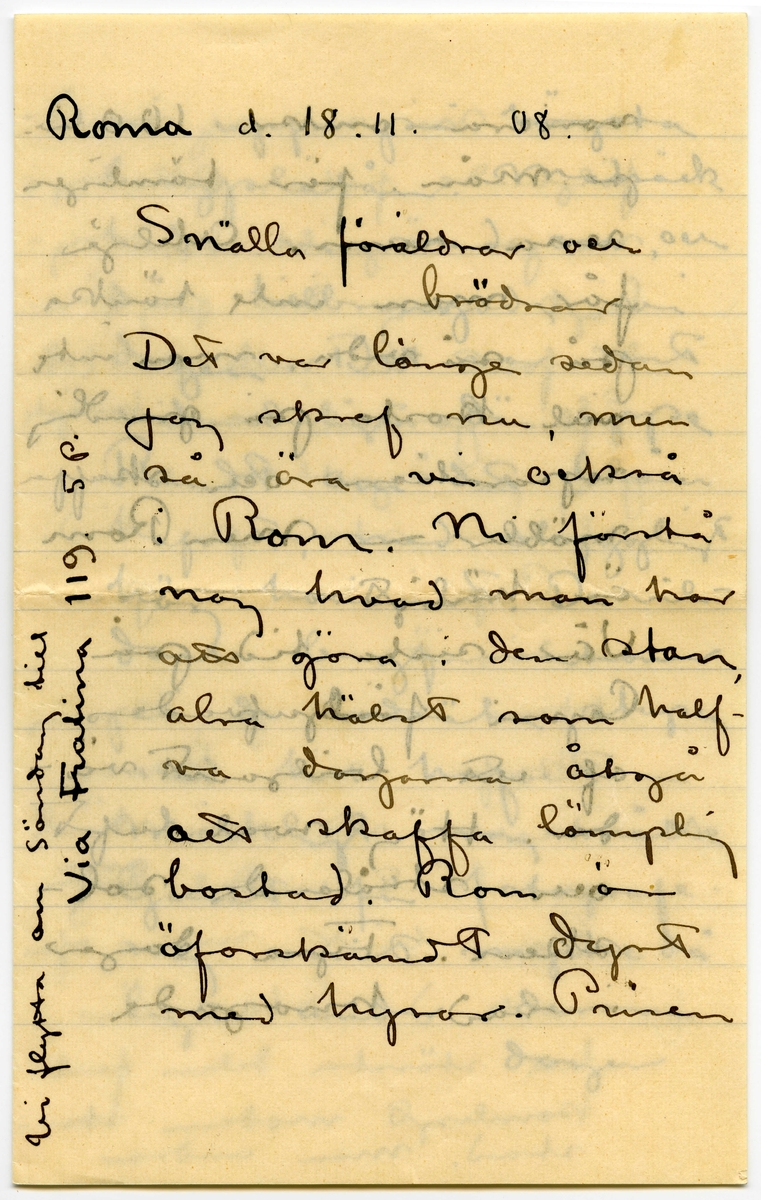 Roma d. 18.11. 08.
Snälla föräldrar och
brödrar
Det var länge sedan
jag skref nu, men
så äro vi också
i Rom. Ni förstå
nog hvad man har
att göra i den stan,
alra hälst som half-
va dagarna åtgå
att skaffa lämplig
bostad. Rom är
oförskämdt dyrt
med hyror. Prisen
Vi flytta om Söndag till
Via Fratina 119. 5 P.